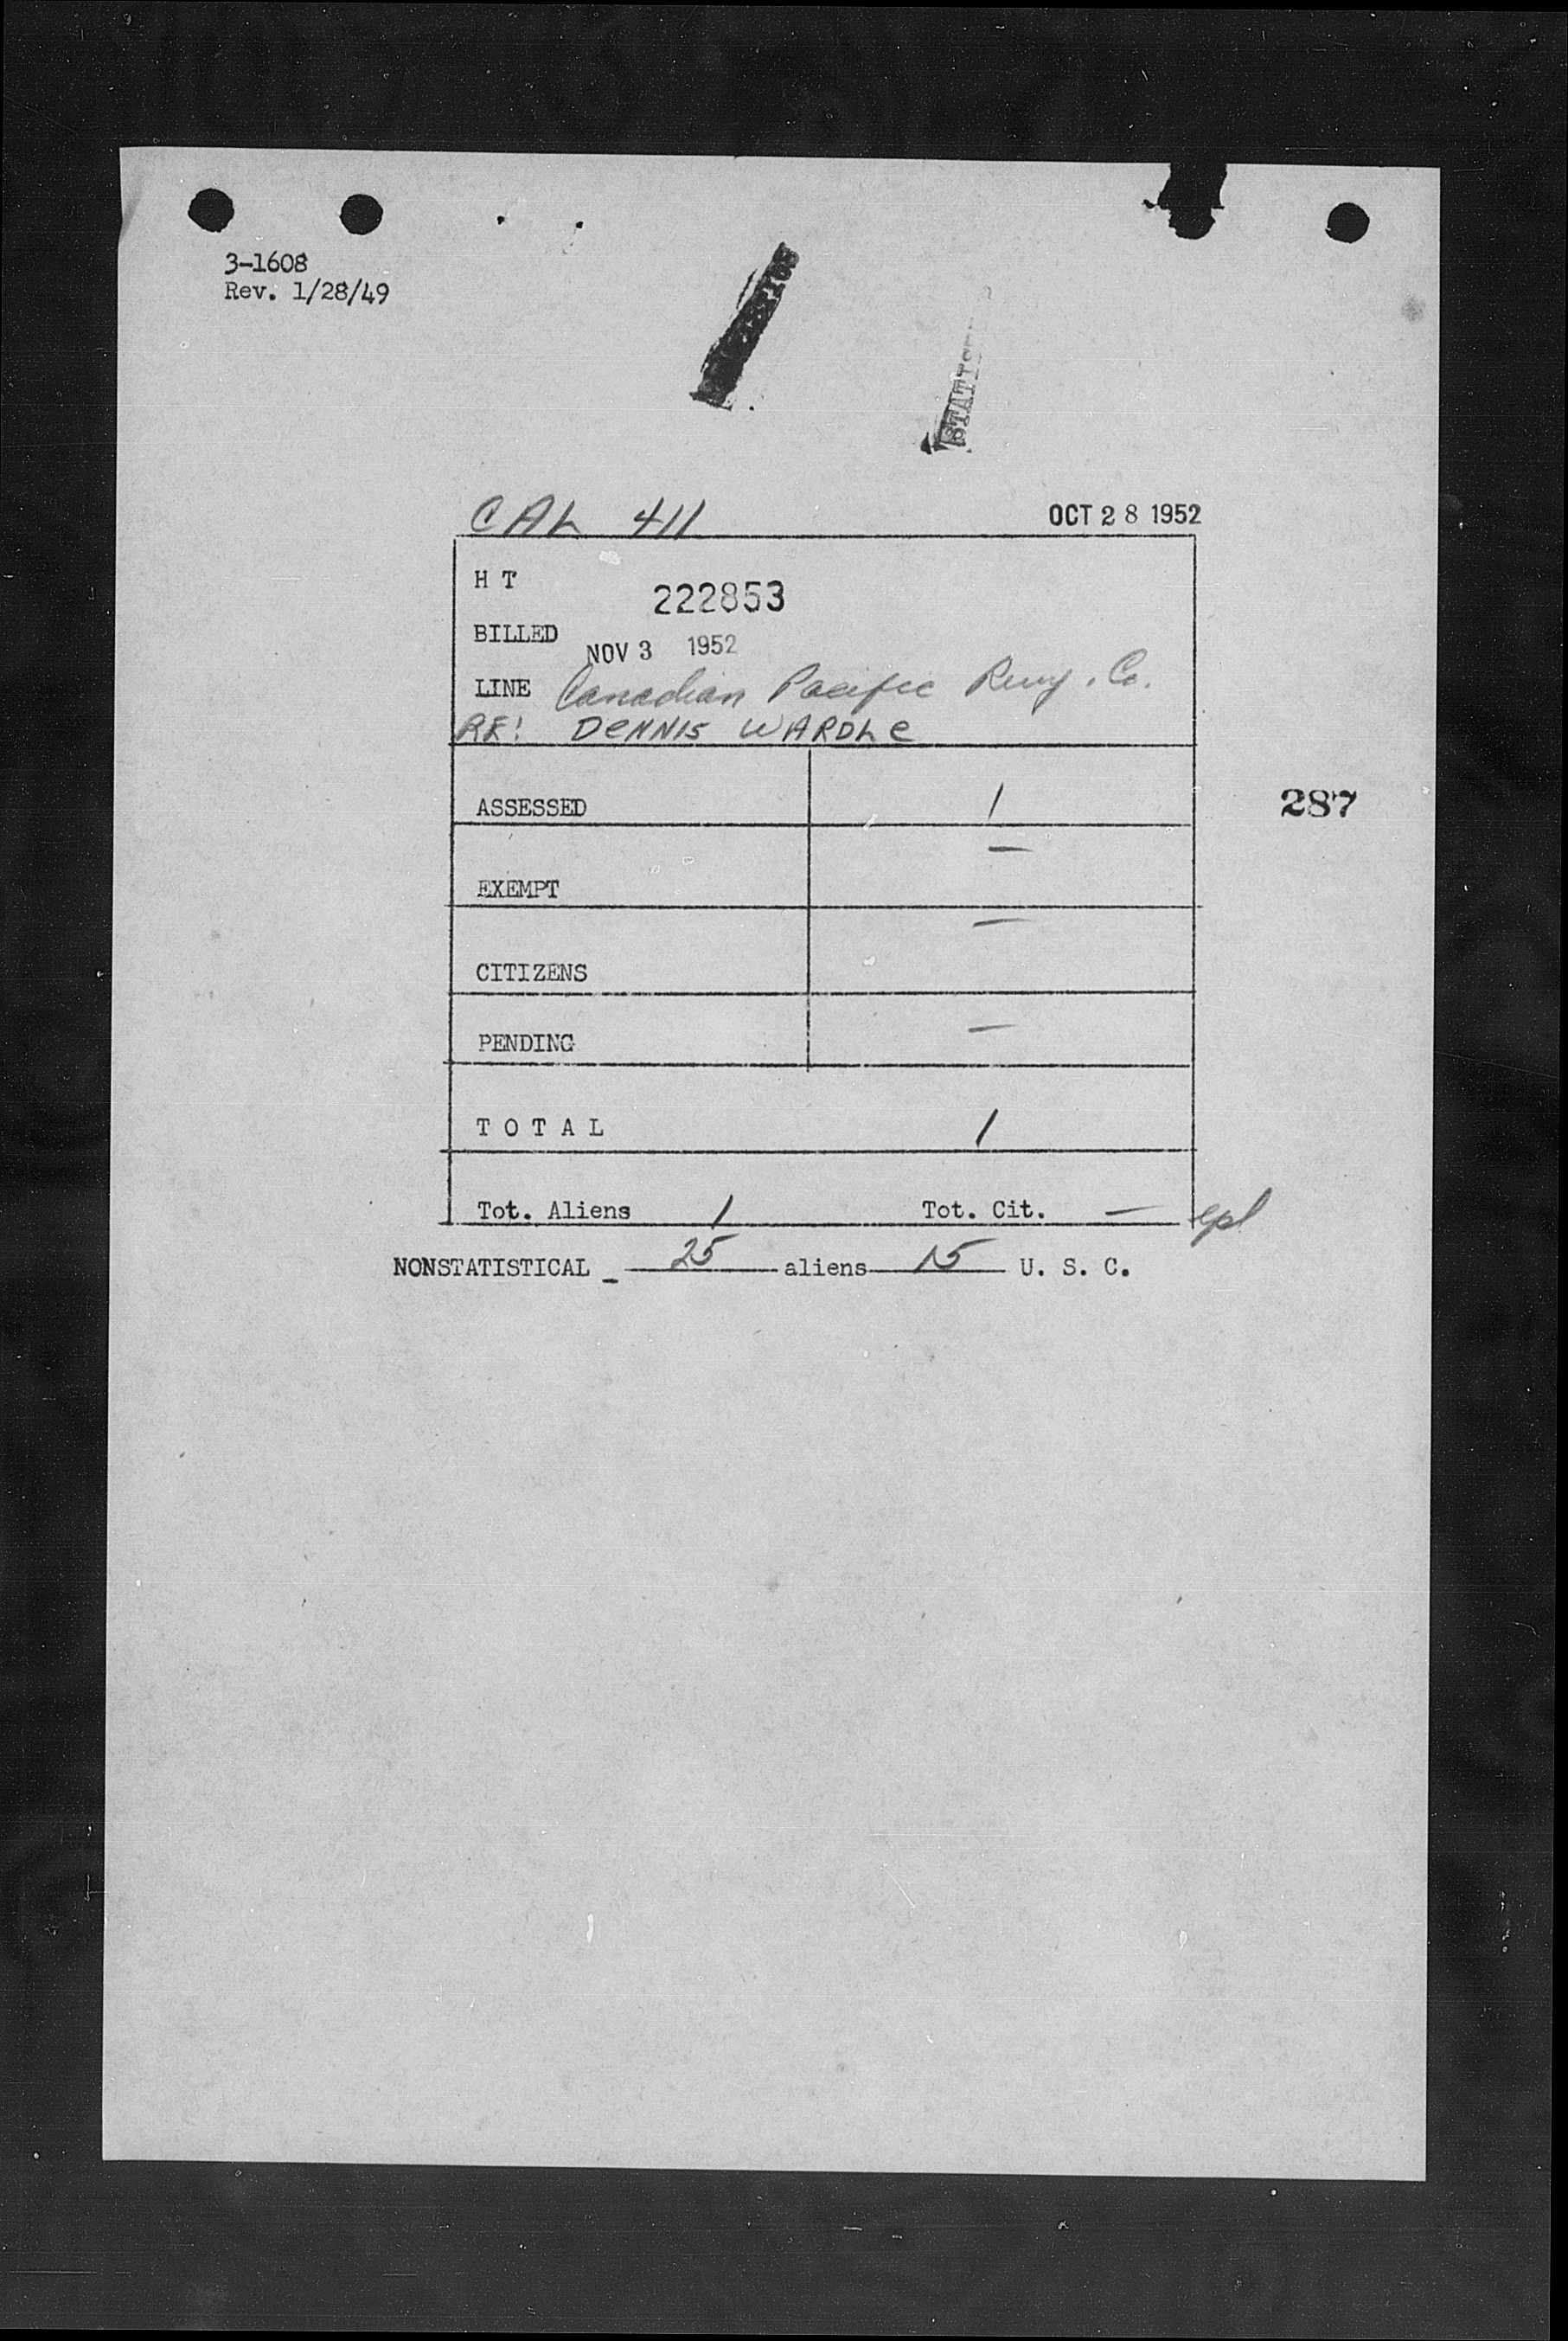 3-1608
Rev. 1/28/49
CAL 411 OCT 28 1952
H T 222853
BILLED NOV 3 1952
LINE Canadian Pacific Rwy. Co.
RE: DENNIS WARDLE
ASSESSED 1
287
EXEMPT —
CITIZENS —
PENDING —
T O T A L 1
Tot. Aliens 1 Tot. Cit. —
NONSTATISTICAL _ 25 aliens 15 U. S. C.